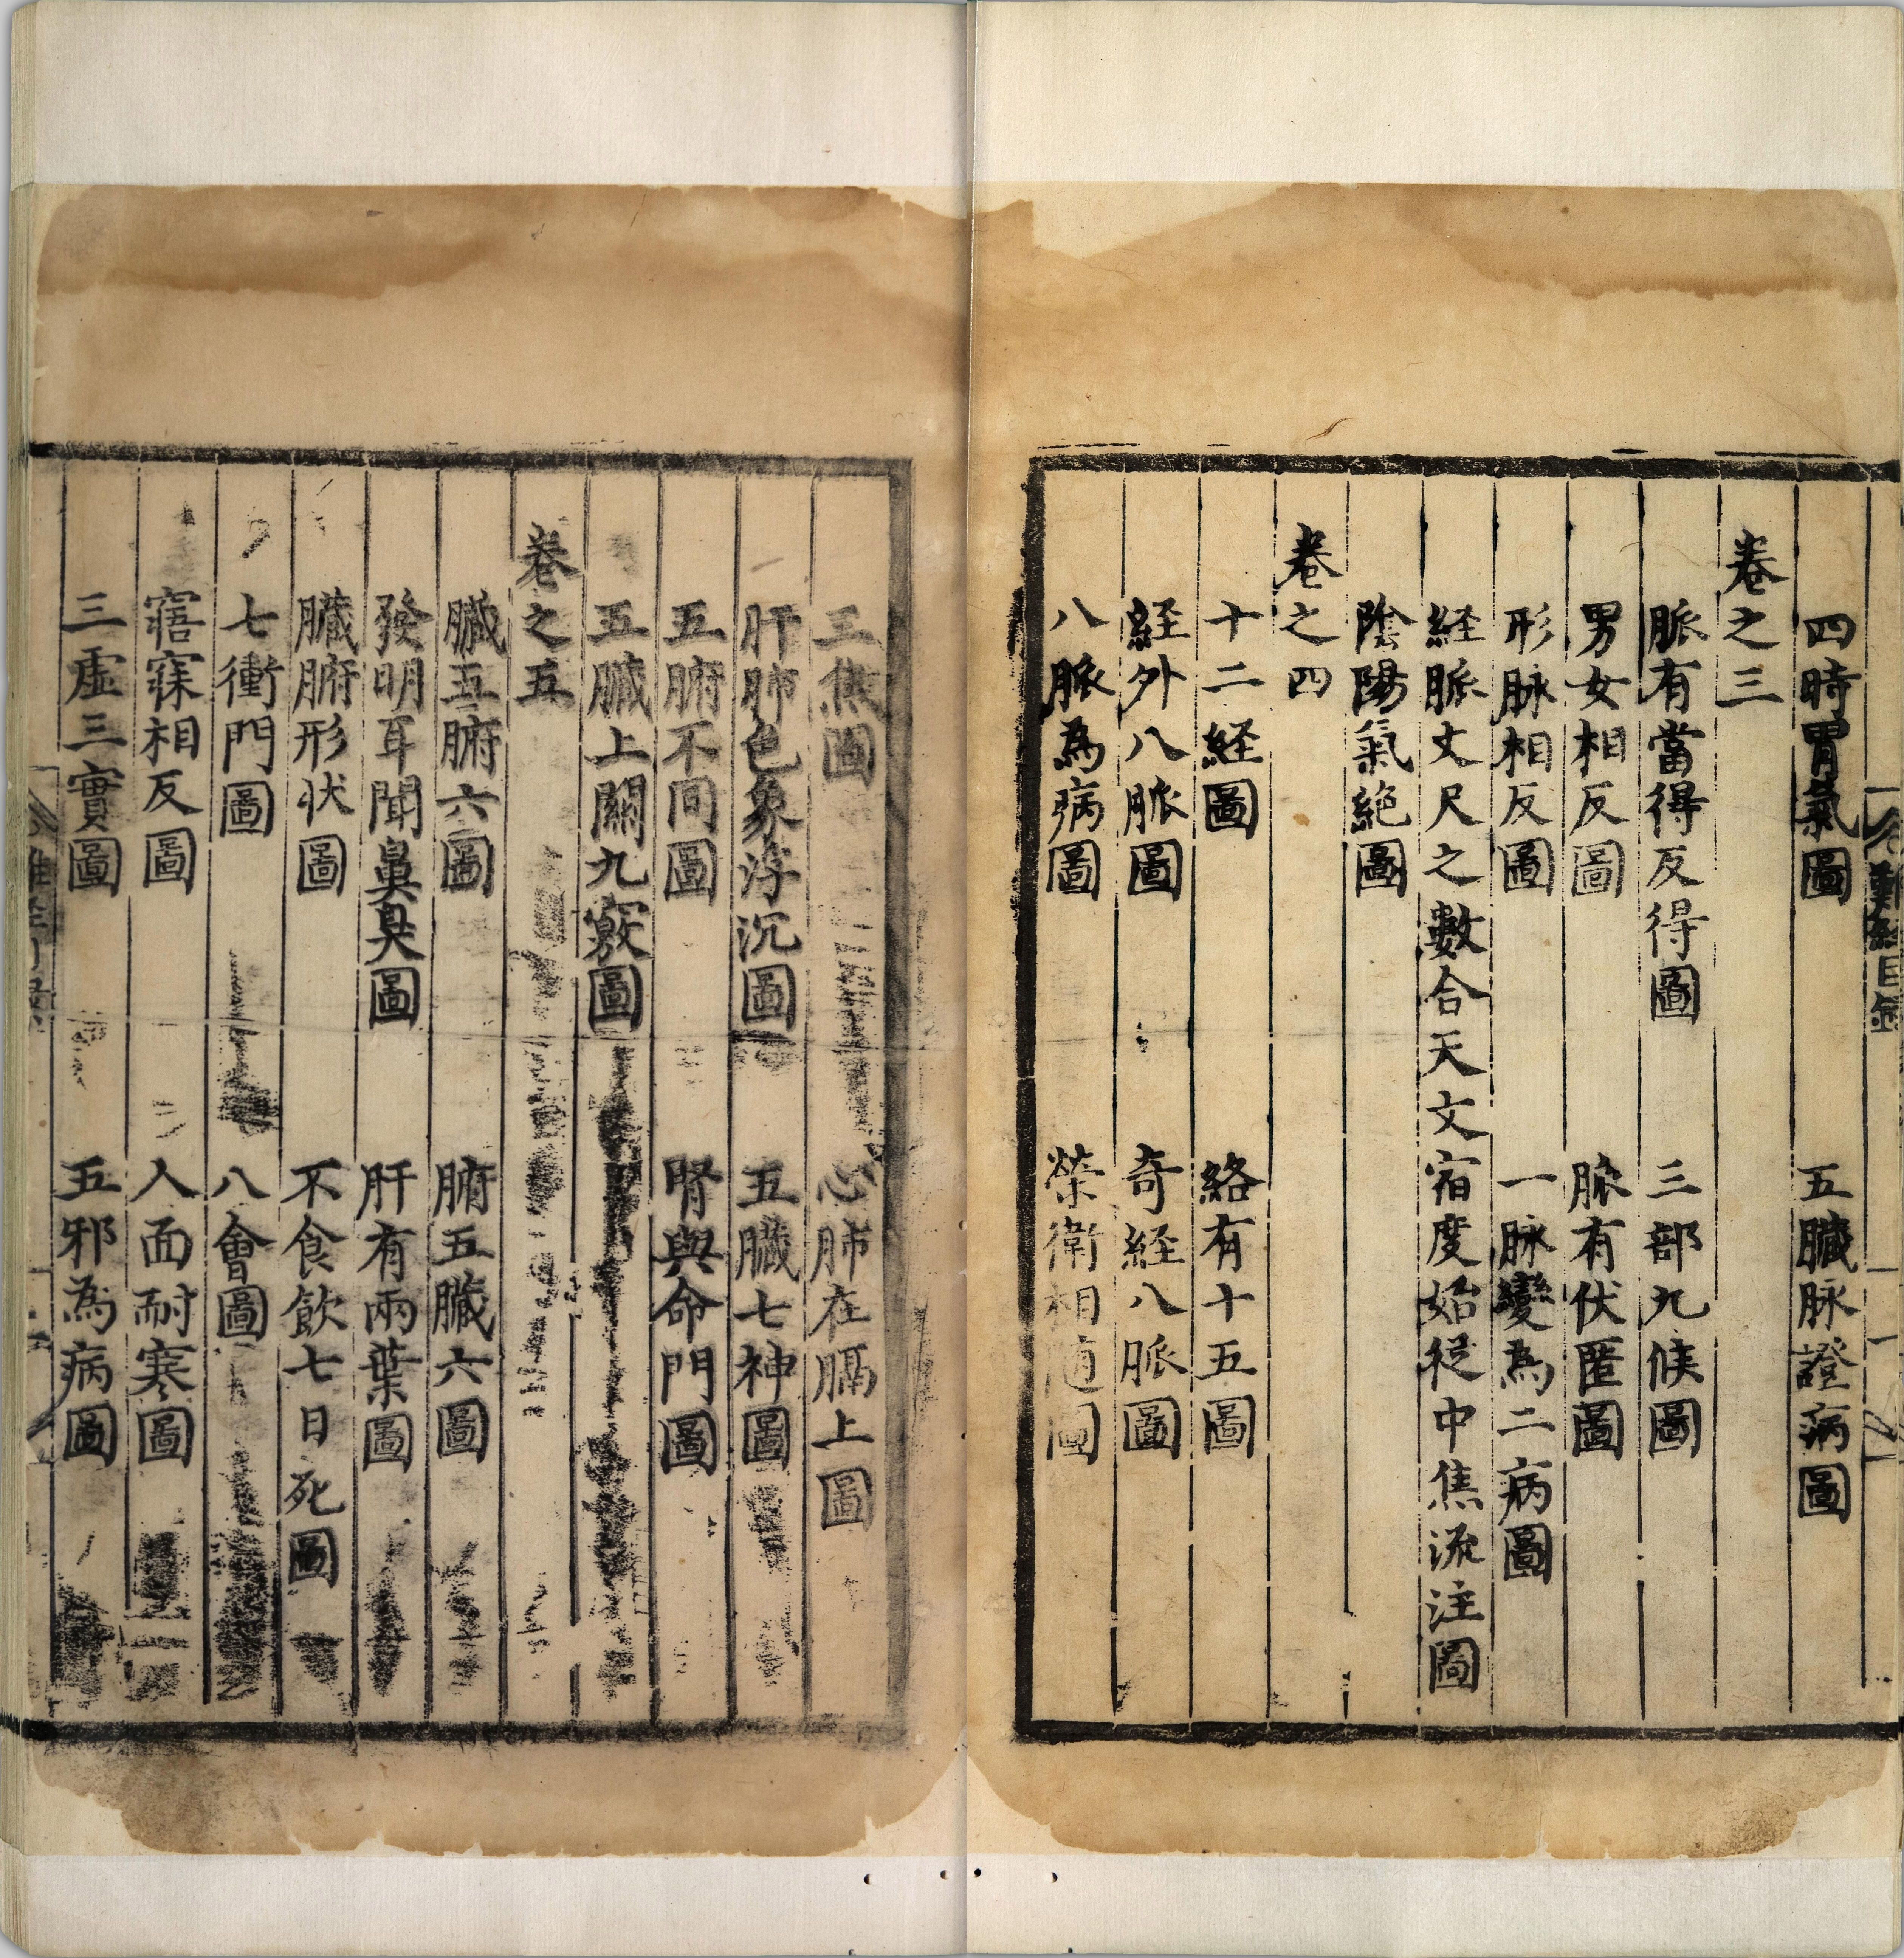 四時胃氣圖　五臟脉證病圖
卷之三
脈有當得反得圖　三部九候圖
男女相反圖　脉有伏匿圖
形脉相反圖　一脉變為二病圖
経脈丈尺之數合天文宿度始從中焦流注圖
陰陽氣絶圖
卷之四
十二経圖　絡有十五圖
経外八脈圖　奇経八脈圖
八脈為病圖　榮衛相随圖
三焦圖　心肺在膈上圖
肝肺色象浮沉圖　五臟七神圖
五腑不同圖　腎與命門圖
五臟上關九竅圖
卷之五
臟五腑六圖　腑五臟六圖
發明耳聞鼻臭圖　肝有兩葉圖
臟腑形状圖　不食飲七日死圖
七衝門圖　八會圖
寤寐相反圖　人面耐寒圖
三虛三實圖　五邪為病圖